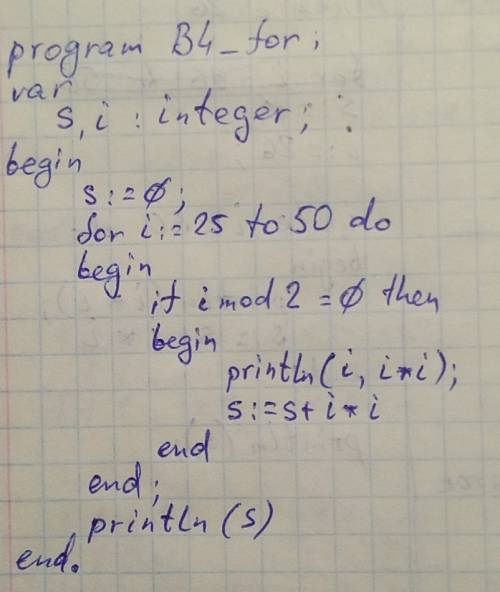 program B4_for;
var
s, i : integer;
begin
s := 0;
for i := 25 to 50 do
begin
if i mod 2 = 0 then
begin
println(i, i*i);
s := s + i*i
end
end;
println(s)
end.